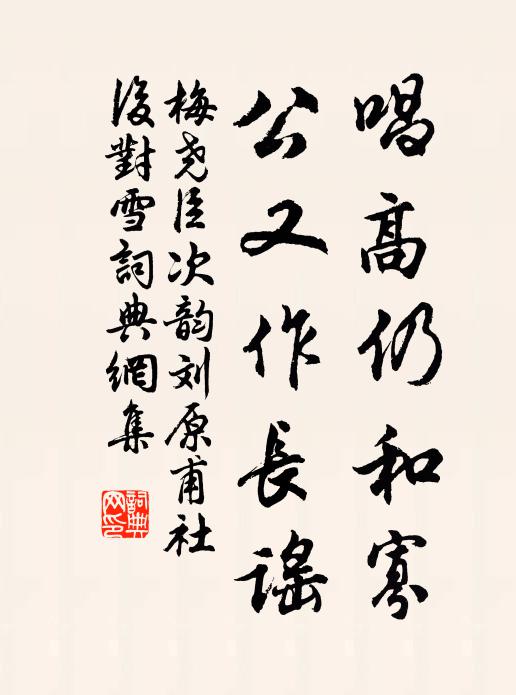 唱高仍和寡
公又作長謠
梅尧臣次韵刘原甫社
後對雪詞典網集
詞典网印